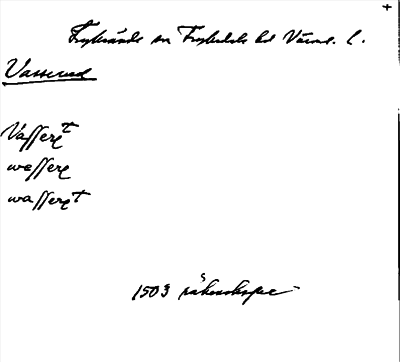 Fryksände sn Fryksdals hd Värml. l.
Vasserud
Vasseret
wessere
wasseret
1503 räkenskaper